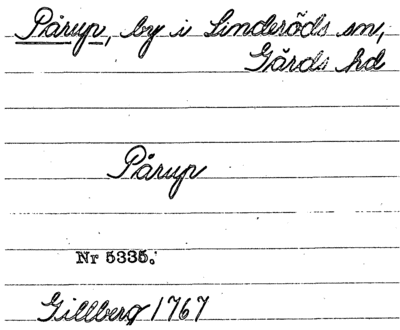 Pårup, by i Linderöds sn,
Gärds hd
Pårup
Nr 5335.
Gillberg 1767